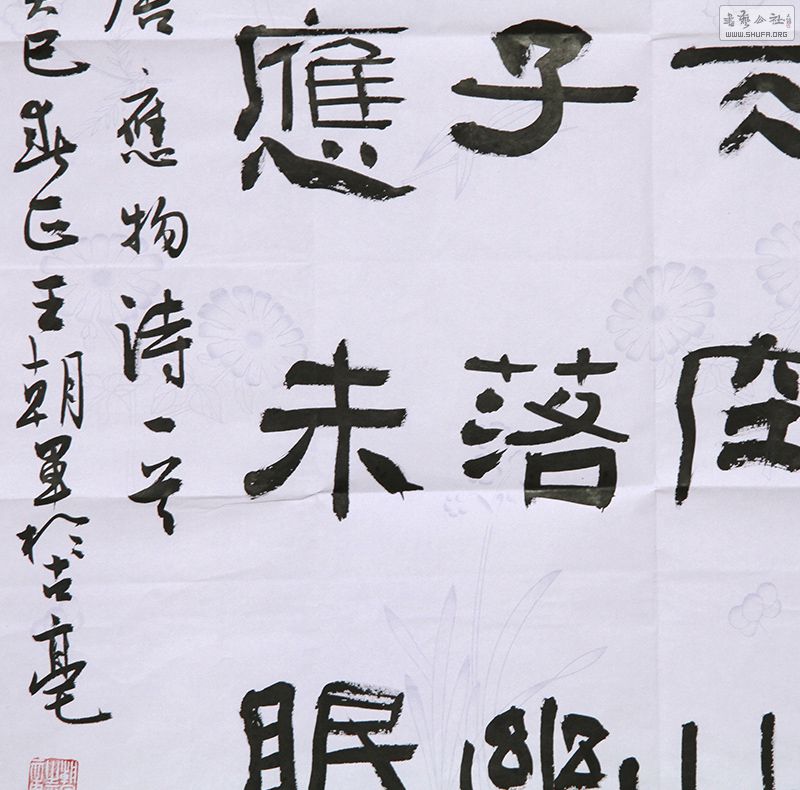 書藝公社
WWW.SHUFA.ORG
天空山
子落幽
應未眠
應物詩一首
癸巳春正王朝軍於古亳